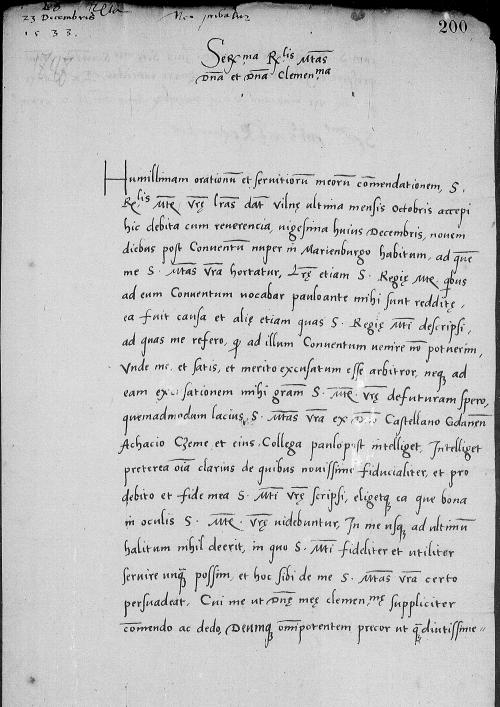 23 Decembris
1533.
200
Ser̄ma R̄lis M̄tas
Dn̄a et Dn̄a Clemen̄ma
Humillimam orationū et seruitiorū meorū com̄endationem, S.
R̄lis M̄te vr̄ę lr̄as dat̄ vilnę ultima mensis octobris accepi
hic debita cum reuerencia, uigesima huius Decembris, nouem
diebus post Conuentū nuper in Marienburgo habitum, ad quē
me S. M̄tas vr̄a hortatur, Lr̄ę etiam S. Regię M̄te q̄bus
ad eum Conuentum uocabar pauloante mihi sunt redditę,
ea fuit causa et alię etiam quas S. Regię M̄ti descripsi,
ad quas me refero, q̄ ad illum Conuentum uenire nō potuerim,
Vnde me et satis, et merito excusatum esse arbitror, neq̨ ad
eam excusationem mihi grām S. M̄te vr̄ę defuturam spero,
quemadmodum lacius S. M̄tas vr̄a ex Dn̄o Castellano Gdanēn
Achacio Czeme et eius Collega paulopost intelliget, Intelliget
preterea oīa clarius de quibus nouissime fiducialiter, et pro
debito et fide mea S. M̄ti vr̄ę scripsi, eligetq̨ ea que bona
in oculis S. M̄te vr̄ę uidebuntur, In me usq̨ ad ultimū
halitum nihil deerit, in quo S. M̄ti fideliter et utiliter
seruire unq̄ possim, et hoc sibi de me S. M̄tas vr̄a certo
persuadeat. Cui me ut Dn̄ę meę clemen̄mę suppliciter
com̄endo ac dedo, Deumq̨ om̄ipotentem precor ut q̄diutissime